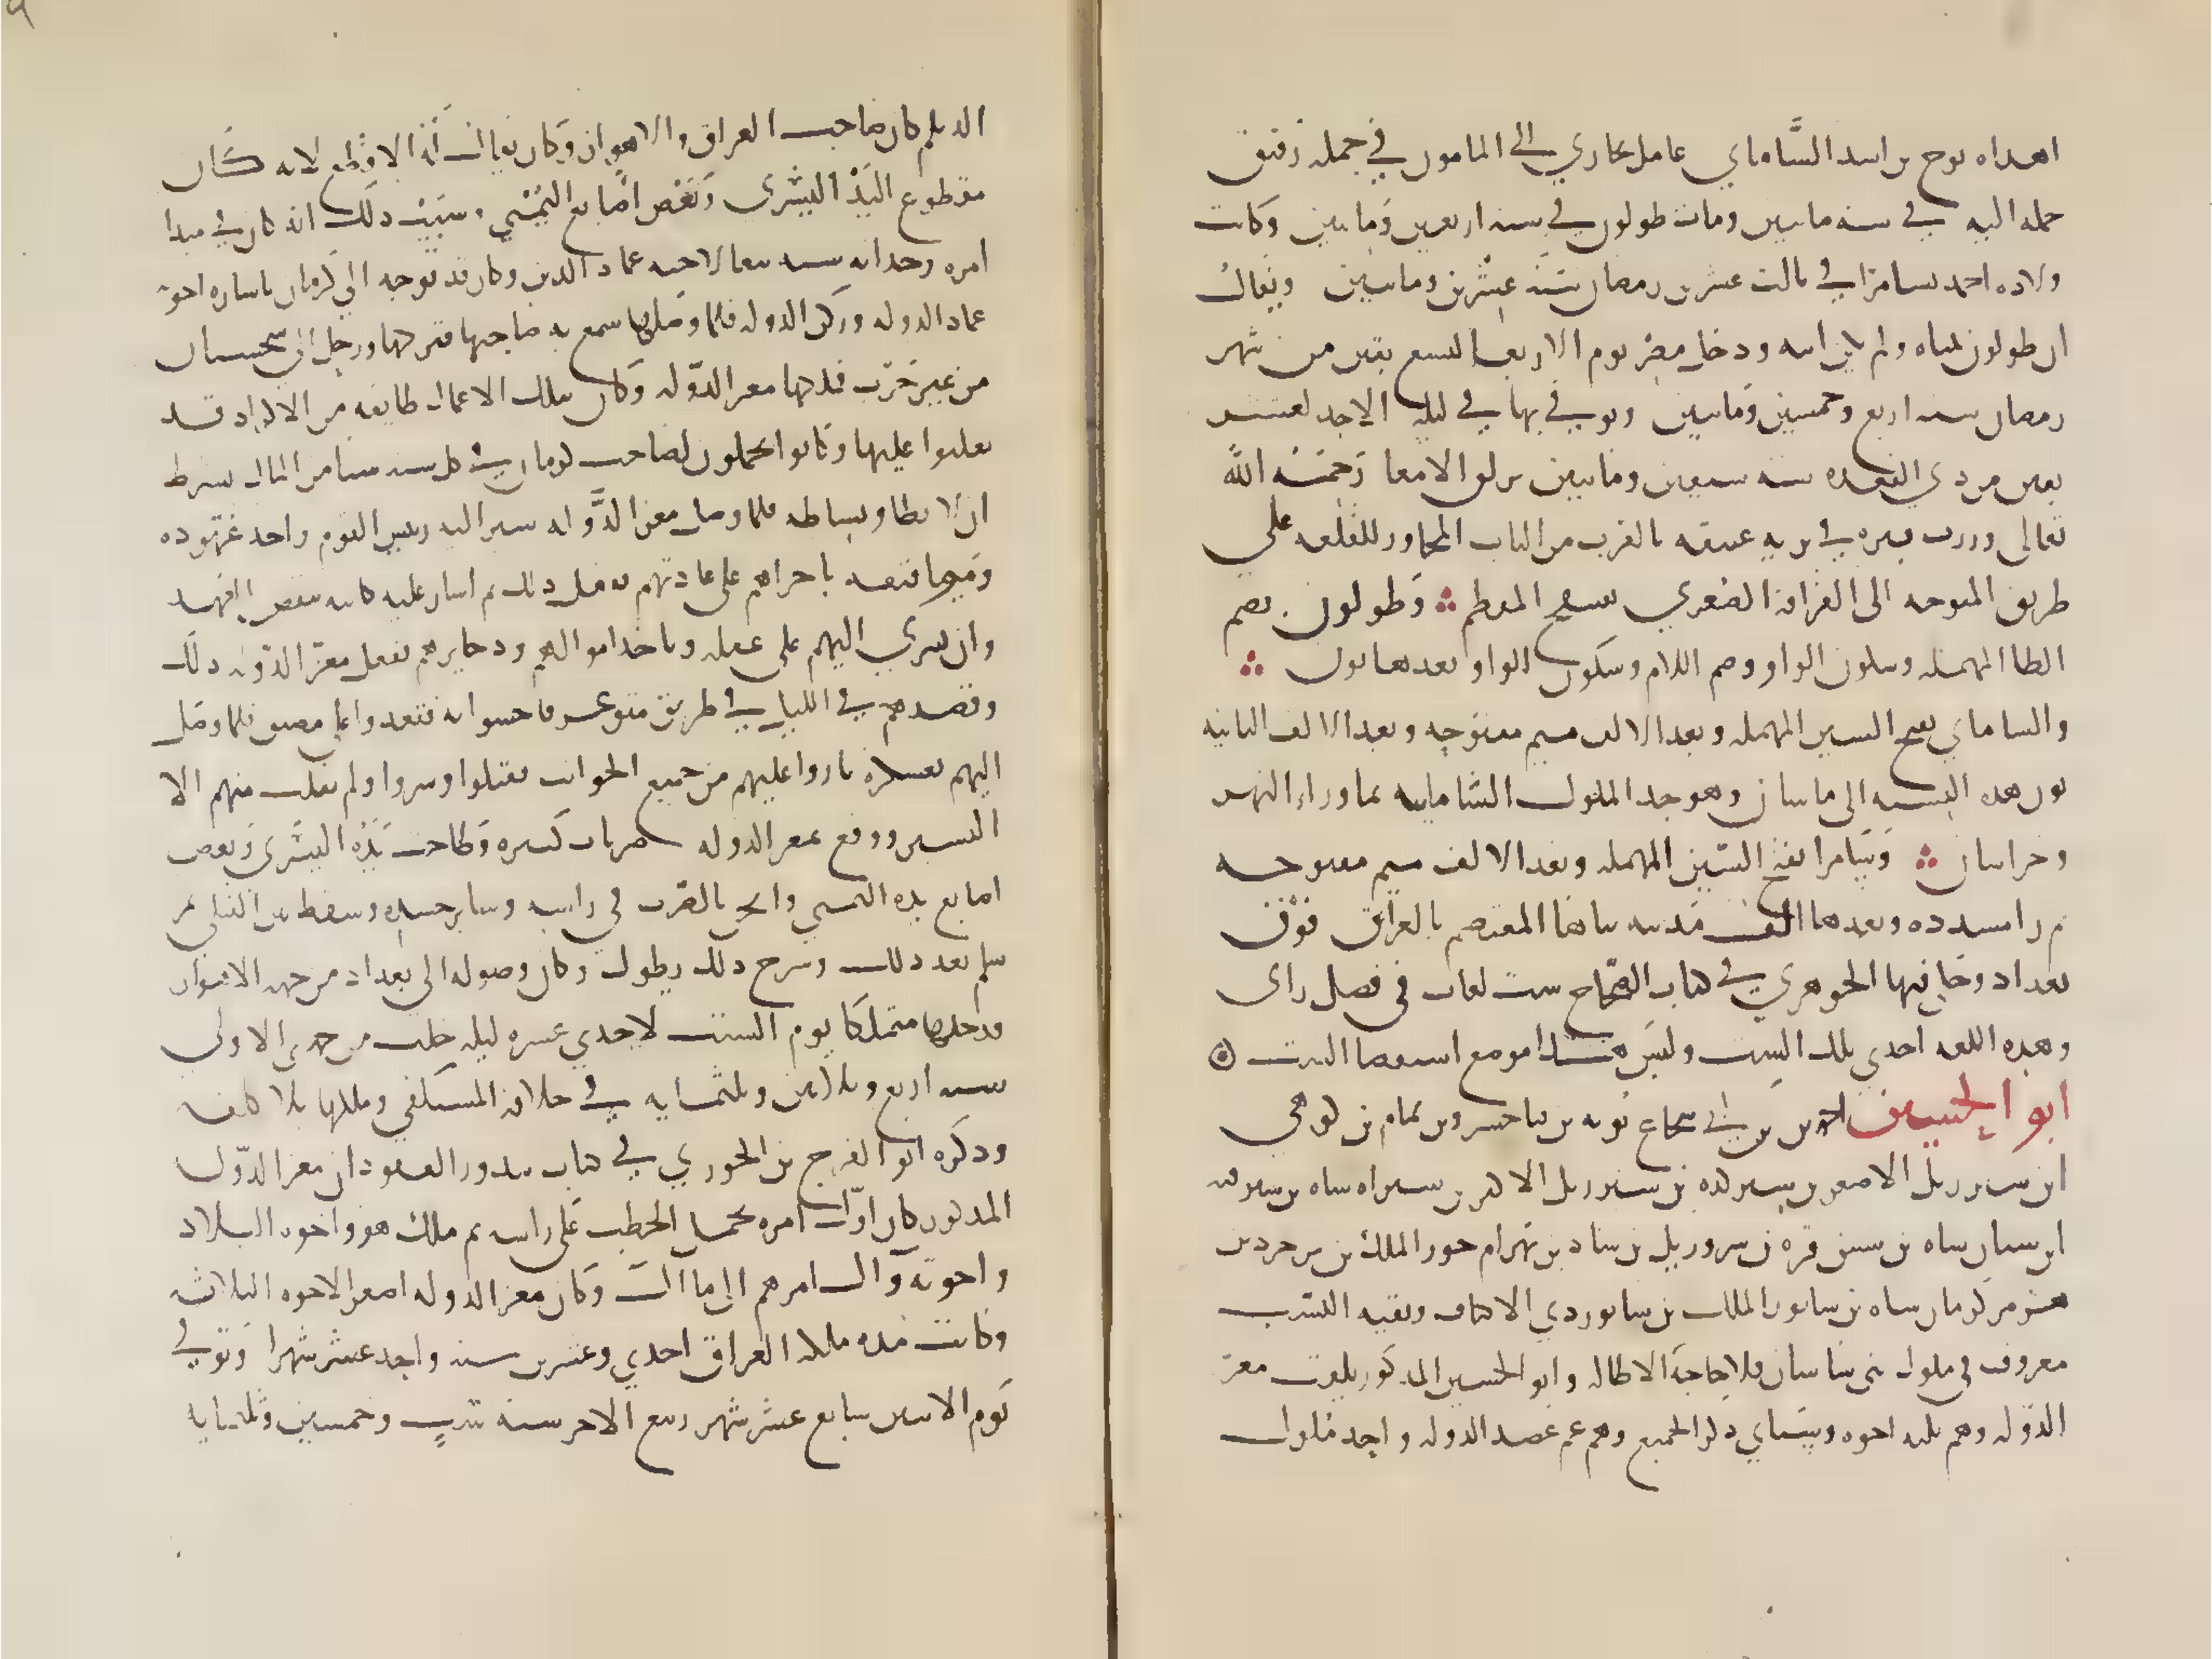 اهداه نوح بن اسد الساماني عامل بخاري الى المامون في جملة رقيق
حمله اليه في سنه مايتين ومات طولون في سنه اربعين ومايتين وكانت
ولاده احمد بسامرا في ثالث عشرين رمضان سنة عشرين ومايتين ويقال
ان طولون تبناه ولم يكن ابنه ودخل مصر يوم الاربعا لتسع بقين من شهر
رمضان سنه اربع وخمسين ومايتين وتوفي بها في ليلة الاحد لعشر
بقين من ذي القعده سنه سبعين ومايتين بزلق الامعا رحمه الله
تعالى وزرت قبره في تربه عتيقه بالقرب من الباب المجاور للقلعه على
طريق المتوجه الى القرافة الصغري بسفح المقطم وطولون بضم
الطا المهملة وسكون الواو وضم اللام وسكون الواو بعدها نون
والساماني بفتح السين المهمله وبعد الالف ميم مفتوحه وبعد الالف الثانيه
نون هذه النسبه الى سامان وهو جد الملوك السامانيه بما وراء النهر
وخراسان وسامرا بفتح السين المهمله وبعد الالف ميم مفتوحه
ثم را مشدده وبعدها الف مدينه بناها المعتصم بالعراق فوق
بغداد وحكى فيها الجوهري في كتاب الصحاح ست لغات في فصل راى
وهذه اللغه احدي تلك الست وليس هذا موضع استقصا الست
ابو الحسين احمد بن ابي شجاع بويه بن فناخسرو بن تمام بن كوهي
ابن شيرزيل الاصغر بن شيركده بن شيرزيل الاكبر بن شيران شاه بن شيرفنه
ابن سنان شاه بن سسن فره بن شروزيل بن سناد بن بهرام جور الملك بن يزدجرد بن
هرمز كرمان شاه بن سابور الملك بن سابور ذي الاكتاف وبقيه النسب
معروف في ملوك بني ساسان فلا حاجة الاطاله وابو الحسين المذكور يلقب معز
الدوله وهم ثلثه اخوه وسياتي ذكر الجميع وهو عم عضد الدوله واحد ملوك
الديلم كان صاحب العراق والاهواز وكان يقال له الاقطع لانه كان
مقطوع اليد اليسرى وبعض اصابع اليمنى وسبب ذلك انه كان في مبدا
امره وحداثه سنه تبعا لاخيه عماد الدين وكان قد توجه الى كرمان باشاره اخويه
عماد الدوله وركن الدوله فلما وصلها سمع به صاحبها فتركها ورحل الى سجستان
من غير حرب فملكها معز الدوله وكان بتلك الاعمال طايفه من الاكراد قد
تغلبوا عليها وكانوا يحملون لصاحب كرمان في كل سنه شيا من المال بشرط
ان لا يطاوا بساطه فلما وصل معز الدوله سير اليه رييس القوم واخذ عهوده
ومواثيقه باجراهم على عادتهم ففعل ذلك ثم اشار عليه كاتبه بنقض العهد
وان يسري اليهم على غفله وياخذ اموالهم وذخايرهم ففعل معز الدوله ذلك
وقصدهم في الليل في طريق متوعره فاحسوا به فقعدوا على مضيق فلما وصل
اليهم بعسكره ثاروا عليهم من جميع الجوانب فقتلوا واسروا ولم يفلت منهم الا
اليسير ووقع بمعز الدوله ضربات كثيره وطاحت يده اليسرى وبعض
اصابع يده اليمنى واثخن بالضرب في راسه وساير جسده وسقط بين القتلى ثم
سلم بعد ذلك وشرح ذلك يطول وكان وصوله الى بغداد من جهه الاهواز
فدخلها متملكا يوم السبت لاحدي عشره ليله خلت من جمدى الاولى
سنه اربع وثلاثين وثلثمايه في خلافه المستكفي وملكها بلا كلفه
وذكره ابو الفرج بن الجوزي في كتاب شذور العقود ان معز الدوله
المذكور كان اول امره يحمل الحطب على راسه ثم ملك هو واخوه البلاد
واخوته وآل امرهم الى ما آل وكان معز الدوله اصغر الاخوه الثلاثه
وكانت مده ملكه العراق احدي وعشرين سنه واحد عشر شهرا وتوفي
يوم الاثنين سابع عشر شهر ربيع الاخر سنة ست وخمسين وثلثمايه